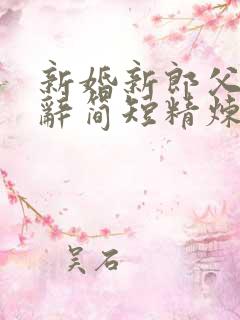 新婚新郎父
辞简短精炼
吴石